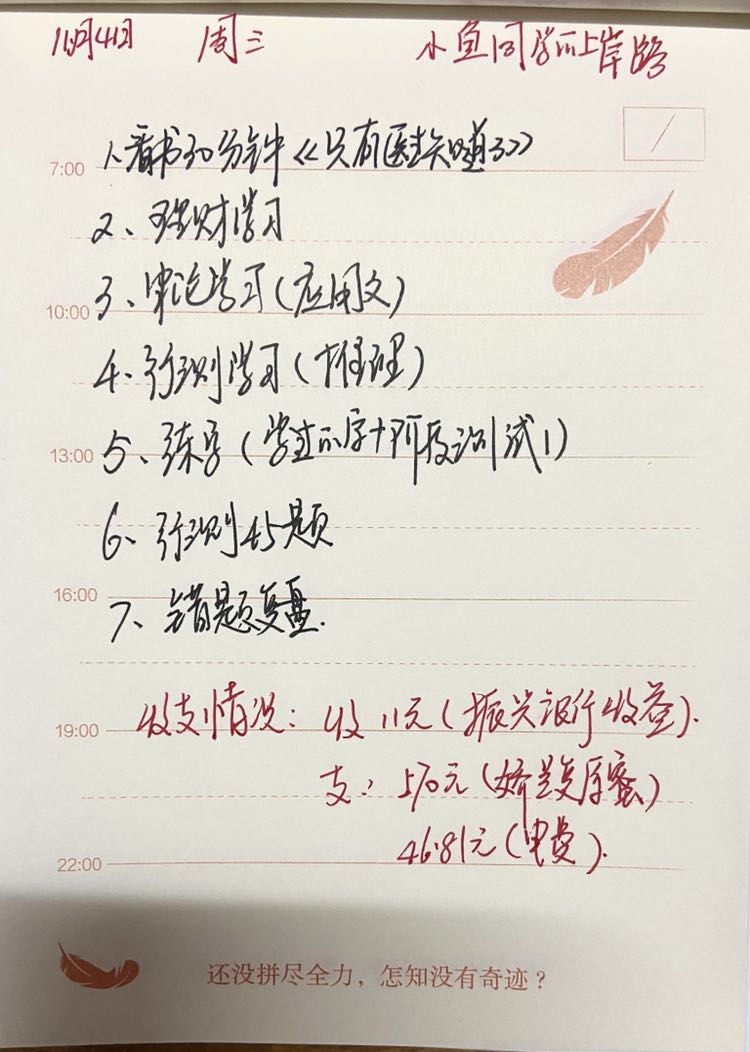 周三 小鱼同学的上岸路
1、看书30分钟《只有医生知道3》
7:00
2、理财学习
3、申论学习(应用文)
10:00
4、行测学习(推理)
5、练字(学过的字+阶段测试1)
13:00
6、行测45题
16:00
7、错题复盘.
收支情况：收 11元(振兴银行收益).
19:00
支：570元(娇兰复原蜜)
46.81元(电费).
22:00
还没拼尽全力，怎知没有奇迹？